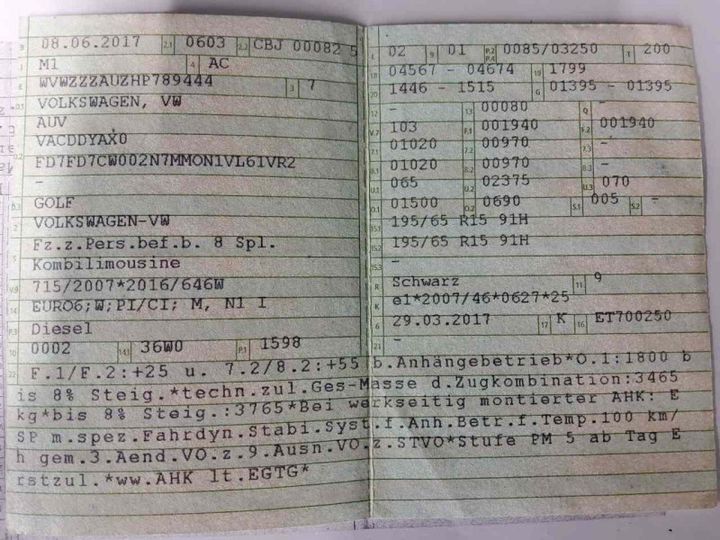 B 08.06.2017 2.1 0603 2.2 CBJ 00082 5
J M1 4 AC
E WVWZZZAUZHP789444 3 7
D.1 VOLKSWAGEN, VW
AUV
D.2 VACDDYAX0
FD7FD7CW002N7MMON1VL61VR2
-
D.3 GOLF
2 VOLKSWAGEN-VW
5 Fz.z.Pers.bef.b. 8 Spl.
Kombilimousine
V.9 715/2007*2016/646W
14 EURO6;W;PI/CI; M, N1 I
P.3 Diesel
10 0002 14.1 36W0 P.1 1598
L 02 9 01 P.2 P.4 0085/03250 T 200
18 04567 - 04674 19 1799
20 1446 - 1515 G 01395 - 01395
12 - 13 00080 Q -
V.7 103 F.1 001940 F.2 001940
7.1 01020 7.2 00970 7.3 -
8.1 01020 8.2 00970 8.3 -
U.1 065 U.2 02375 U.3 070
O.1 01500 O.2 0690 S.1 005 S.2 -
15.1 195/65 R15 91H
15.2 195/65 R15 91H
15.3 -
R Schwarz 11 9
K e1*2007/46*0627*25
6 29.03.2017 17 K 16 ET700250
21 -
22 F.1/F.2:+25 u. 7.2/8.2:+55 b.Anhängebetrieb*O.1:1800 b
is 8% Steig.*techn.zul.Ges-Masse d.Zugkombination:3465
kg*bis 8% Steig.:3765*Bei werkseitig montierter AHK: E
SP m.spez.Fahrdyn.Stabi.Syst.f.Anh.Betr.f.Temp.100 km/
h gem.3.Aend.VO.z.9.Ausn.VO.z.STVO*Stufe PM 5 ab Tag E
rstzul.*ww.AHK lt.EGTG*